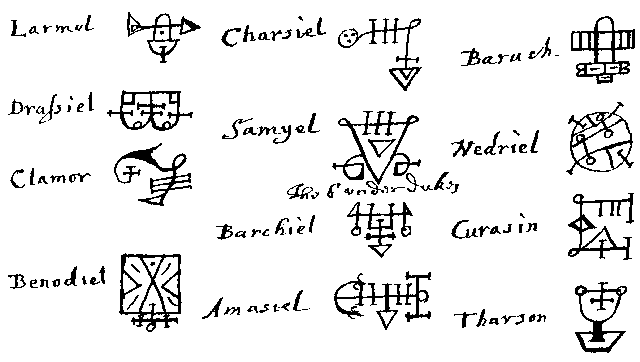 Larmol
Drassiel
Clamor
Benodiel
Charsiel
Samyel
The 6 under dukes
Barchiel
Amasiel
Baruch.
Nedriel
Curasin
Tharson